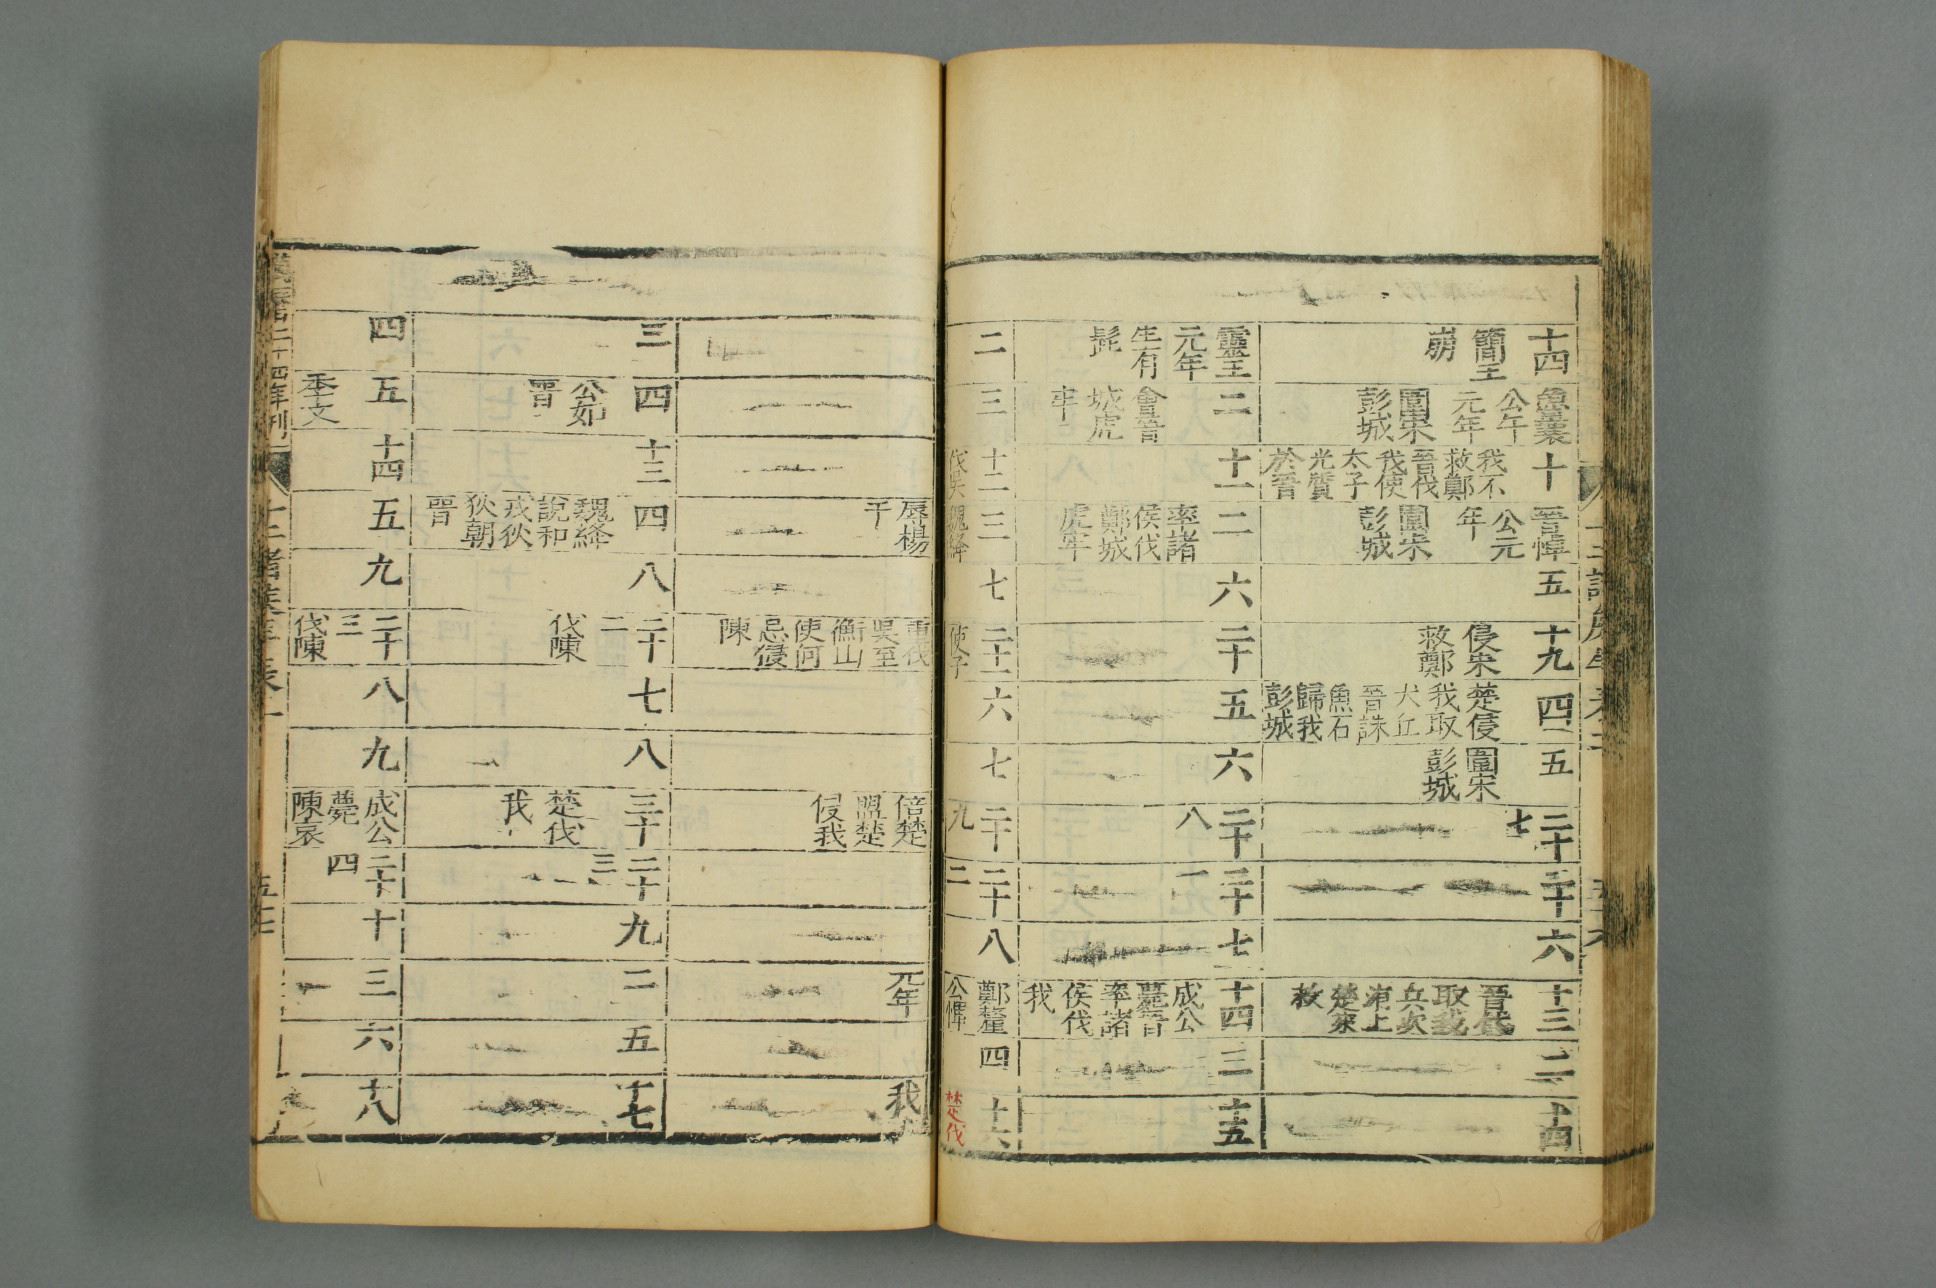 十四
簡王
崩
魯襄
公午
元年
圍宋
彭城
十
我不
救鄭
晉伐
我使
太子
光質
於晉
晉悼
公元
年
圍宋
彭城
五
十九
侵宋
救鄭
四
楚侵
我取
犬丘
晉誅
魚石
歸我
彭城
五
圍宋
彭城
二十
七
二十
六
十三
晉伐
取我
兵次
洧上
楚來
救
二
十四
靈王
元年
生有
髭
二
會晉
城虎
牢
十一
二
率諸
侯伐
鄭城
虎牢
六
二十
五
六
二十
八
二十
一
七
十四
成公
薨晉
率諸
侯伐
我
三
十五
二
三
十二
伐吳
三
魏絳
辱楊
干
七
二十一
使子
重伐
吳至
衡山
使何
忌侵
陳
六
七
二十
九
倍楚
盟楚
侵我
二十
二
八
鄭釐
公惲
元年
四
十六
楚伐
我
三
四
公如
晉
十三
四
魏絳
說和
戎狄
狄朝
晉
八
二十
二
伐陳
七
八
三十
楚伐
我
二十
三
九
二
五
十七
四
五
季文
十四
五
九
二十
三
伐陳
八
九
成公
薨
陳哀
二十
四
十
三
六
十八